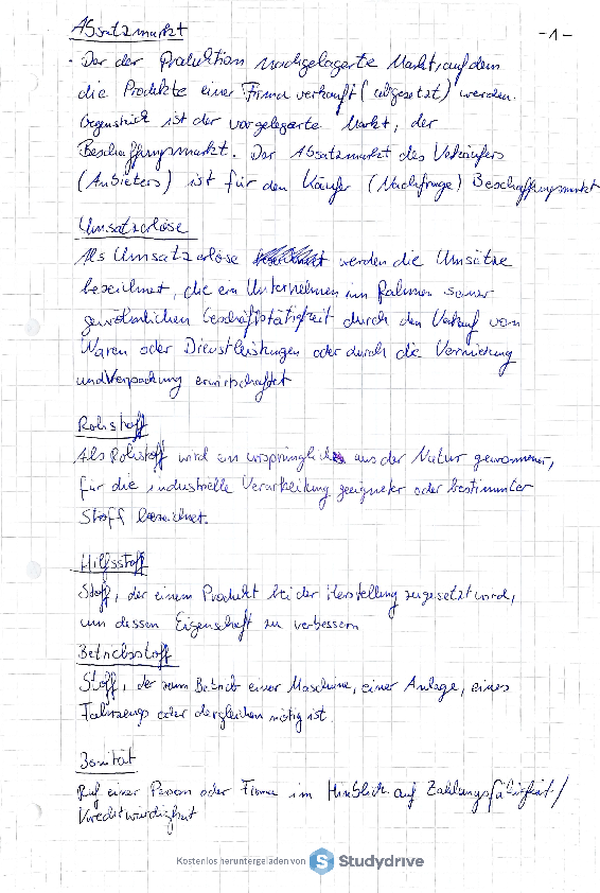 Absatzmarkt
-1-
· Der der Produktion nachgelagerte Markt, auf dem
die Produkte einer Firma verkauft (abgesetzt) werden.
Gegenstück ist der vorgelagerte Markt, der
Beschaffungsmarkt. Der Absatzmarkt des Verkäufers
(Anbieters) ist für den Käufer (Nachfrage) Beschaffungsmarkt
Umsatzerlöse
Als Umsatzerlöse werden die Umsätze
bezeichnet, die ein Unternehmen im Rahmen seiner
gewöhnlichen Geschäftstätigkeit durch den Verkauf von
Waren oder Dienstleistungen oder durch die Vermietung
und Verpachtung erwirtschaftet
Rohstoff
Als Rohstoff wird ein ursprünglich aus der Natur gewonnener,
für die industrielle Verarbeitung geeigneter oder bestimmter
Stoff bezeichnet.
Hilfsstoff
Stoff, der einem Produkt bei der Herstellung zugesetzt wird,
um dessen Eigenschaft zu verbessern
Betriebsstoff
Stoff, der zum Betrieb einer Maschine, einer Anlage, eines
Fahrzeugs oder dergleichen nötig ist.
Bonität
Ruf einer Person oder Firma im Hinblick auf Zahlungsfähigkeit/
Kreditwürdigkeit
Kostenlos heruntergeladen von Studydrive